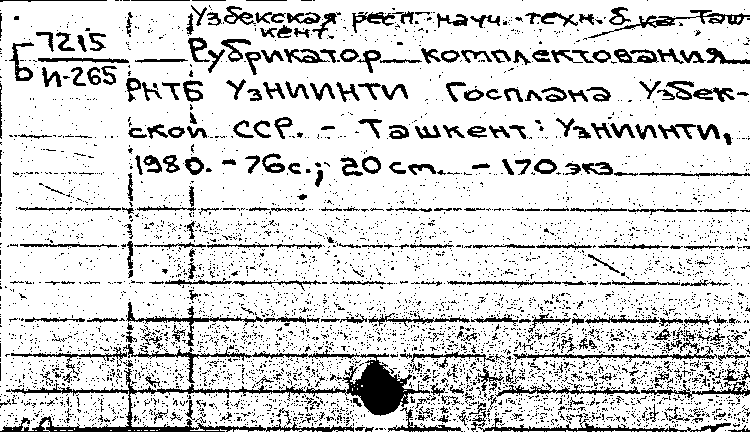 Узбекская респ. науч.-техн. б-ка. Таш-
кент.
7215
Б И-265
Рубрикатор комплектования
РНТБ УзНИИНТИ Госплана Узбек-
ской ССР. - Ташкент: УзНИИНТИ,
1980. - 76с.; 20 cm. - 170 экз.